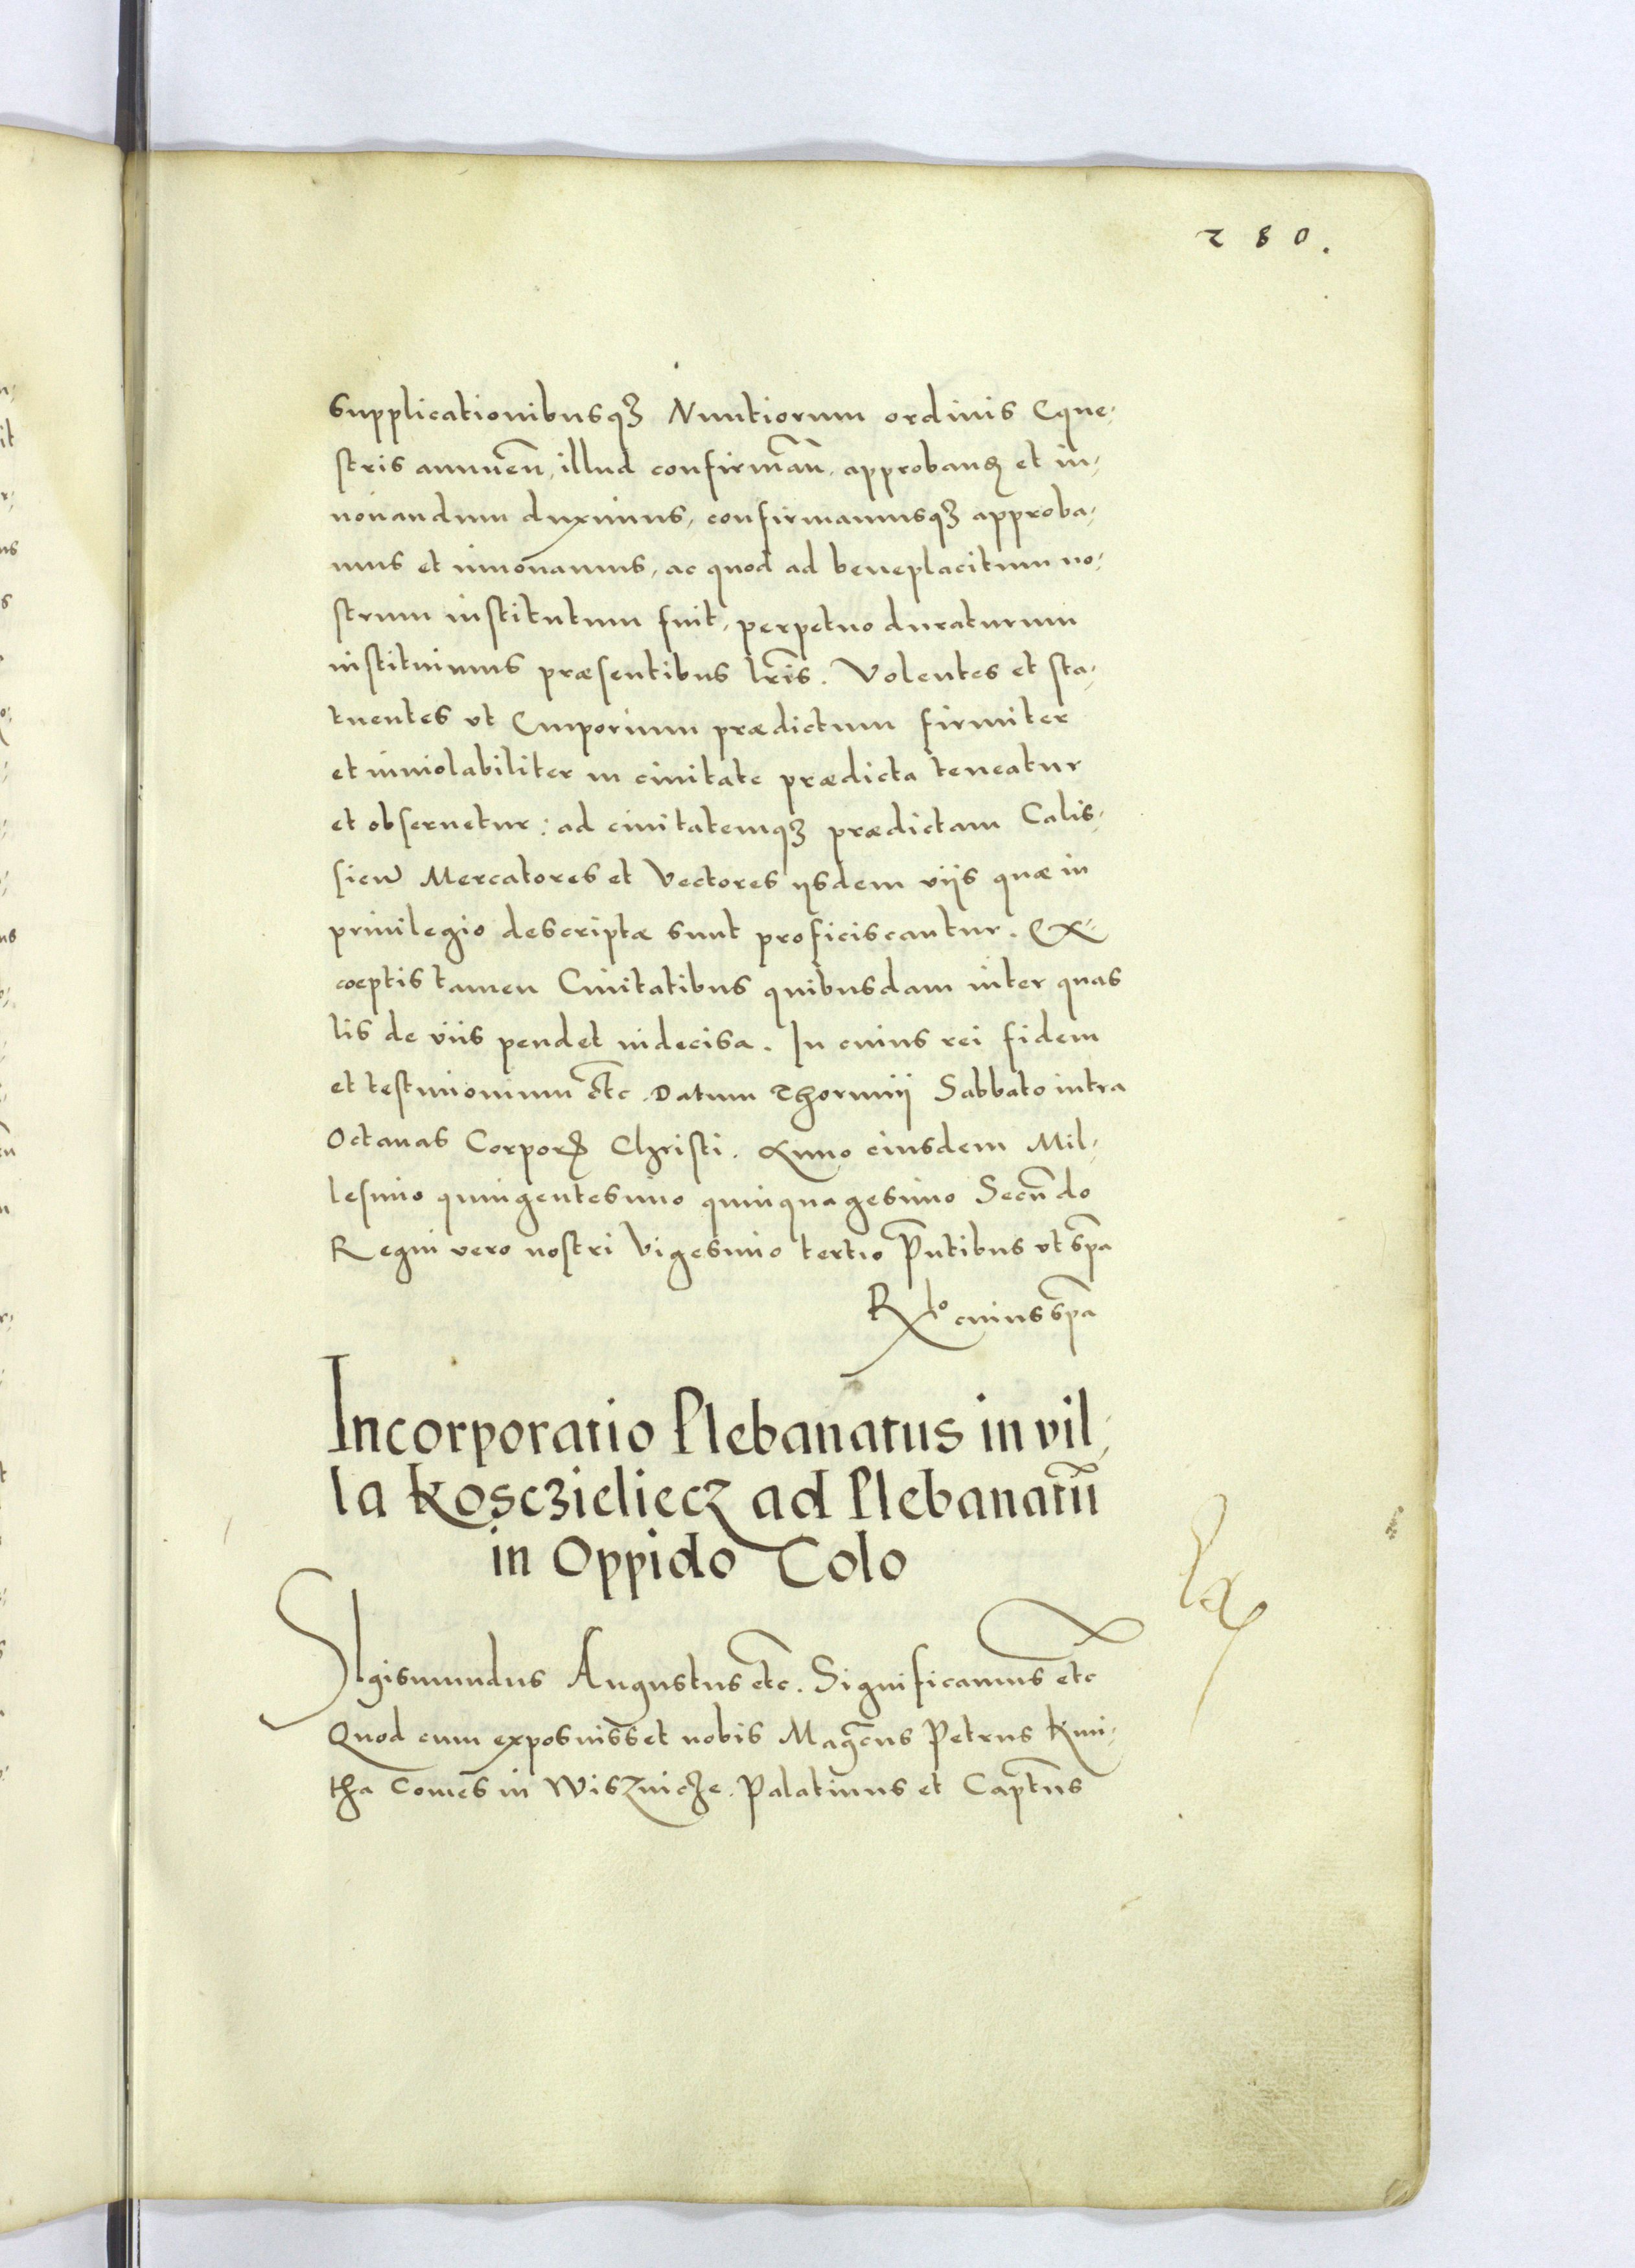 280.
supplicationibusqȝ Nuntiorum ordinis Eque-
stris annuen̄, illud confirman̄, approbanꝺ et in-
novandum duximus, confirmamusqȝ approba-
mus et innovamus, ac quod ad beneplacitum no-
strum institutum fuit, perpetuo duraturum
instituimus præsentibus lr̄is. Volentes et sta-
tuentes vt Emporium prædictum firmiter
et inviolabiliter in civitate prædicta teneatur
et observetur: ad civitatemqȝ prædictam Calis-
sien̄ Mercatores et Vectores ijsdem viis quæ in
privilegio descriptæ sunt proficiscantur. Ex-
cœptis tamen Civitatibus quibusdam inter quas
lis de viis pendet indecisa. In cuius rei fidem
et testimonium etc. Datum Thorunij Sabbato intra
Octavas Corporꝭ Christi. Anno eiusdem Mil-
lesimo quingentesimo quinquagesimo Secūdo
Regni vero nostri Vigesimo tertio Pn̄tibus vt sp̄a
Rlo cuius sp̄a
Incorporatio Plebanatus in vil-
la Kosczieliecz ad Plebanatū
in Oppido Colo
SIgismundus Augustus etc. Significamus etc
Quod cum exposuisset nobis Magc̄us Petrus Kmi-
tha Comes in Wisznicze. Palatinus et Capt̄us